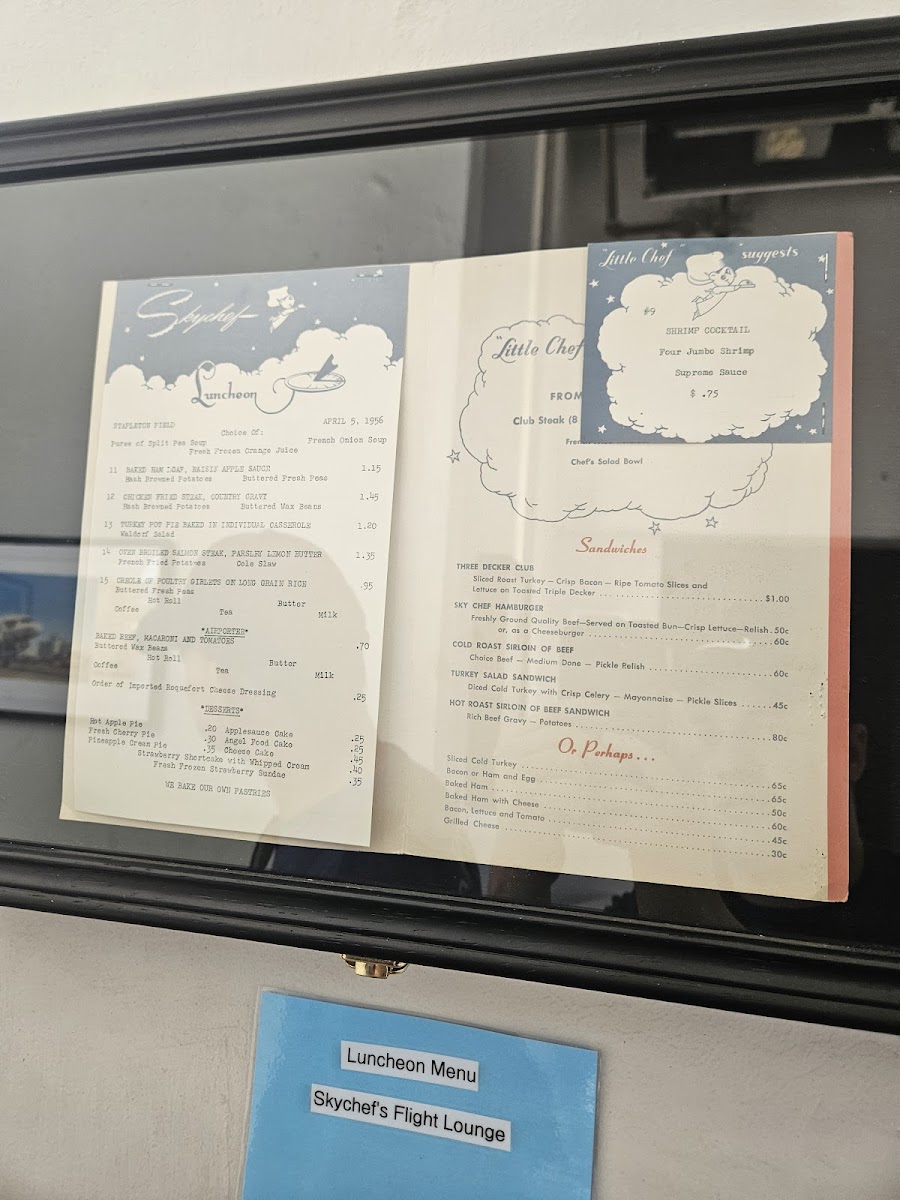 Skychef
Luncheon
STAPLETON FIELD
APRIL 5, 1956
Choice Of:
Puree of Split Pea Soup
French Onion Soup
Fresh Frozen Orange Juice
11 BAKED HAM LOAF, RAISIN APPLE SAUCE 1.15
Hash Browned Potatoes Buttered Fresh Peas
12 CHICKEN FRIED STEAK, COUNTRY GRAVY 1.45
Hash Browned Potatoes Buttered Wax Beans
13 TURKEY POT PIE BAKED IN INDIVIDUAL CASSEROLE 1.20
Waldorf Salad
14 OVEN BROILED SALMON STEAK, PARSLEY LEMON BUTTER 1.35
French Fried Potatoes Cole Slaw
15 CREOLE OF POULTRY GIBLETS ON LONG GRAIN RICE .95
Buttered Fresh Peas
Hot Roll Butter
Coffee Tea Milk
*AIRPORTER*
BAKED BEEF, MACARONI AND TOMATOES .70
Buttered Wax Beans
Hot Roll Butter
Coffee Tea Milk
Order of Imported Roquefort Cheese Dressing .25
*DESSERTS*
Hot Apple Pie .20 Applesauce Cake .25
Fresh Cherry Pie .30 Angel Food Cake .25
Pineapple Cream Pie .35 Cheese Cake .45
Strawberry Shortcake with Whipped Cream .40
Fresh Frozen Strawberry Sundae .35
WE BAKE OUR OWN PASTRIES
"Little Chef
FROM
Club Steak (8
Fren
Chef's Salad Bowl
"Little Chef" suggests
#9
SHRIMP COCKTAIL
Four Jumbo Shrimp
Supreme Sauce
$ .75
Sandwiches
THREE DECKER CLUB
Sliced Roast Turkey — Crisp Bacon — Ripe Tomato Slices and
Lettuce on Toasted Triple Decker $1.00
SKY CHEF HAMBURGER
Freshly Ground Quality Beef—Served on Toasted Bun—Crisp Lettuce—Relish. 50c
or, as a Cheeseburger 60c
COLD ROAST SIRLOIN OF BEEF
Choice Beef — Medium Done — Pickle Relish 60c
TURKEY SALAD SANDWICH
Diced Cold Turkey with Crisp Celery — Mayonnaise — Pickle Slices 45c
HOT ROAST SIRLOIN OF BEEF SANDWICH
Rich Beef Gravy — Potatoes 80c
Or Perhaps...
Sliced Cold Turkey 65c
Bacon or Ham and Egg 65c
Baked Ham 50c
Baked Ham with Cheese 60c
Bacon, Lettuce and Tomato 45c
Grilled Cheese 30c
Luncheon Menu
Skychef's Flight Lounge